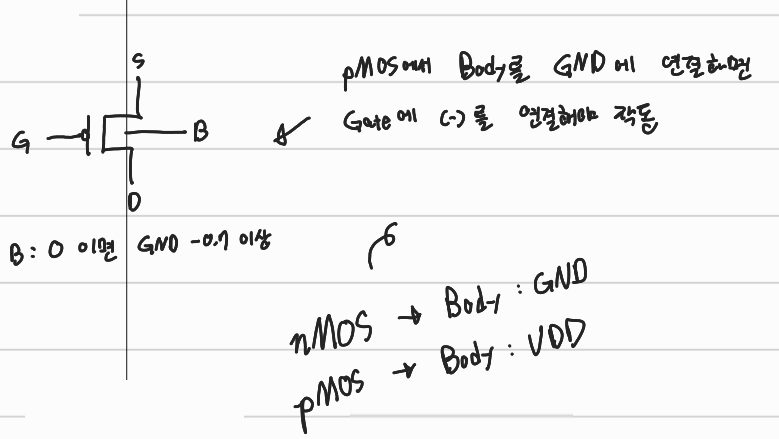 S
pMOS에서 Body를 GND에 연결하면
Gate에 (-)를 연결해야 작동
G
B
D
B : 0 이면 GND -0.7 이상
nMOS → Body : GND
pMOS → Body : VDD